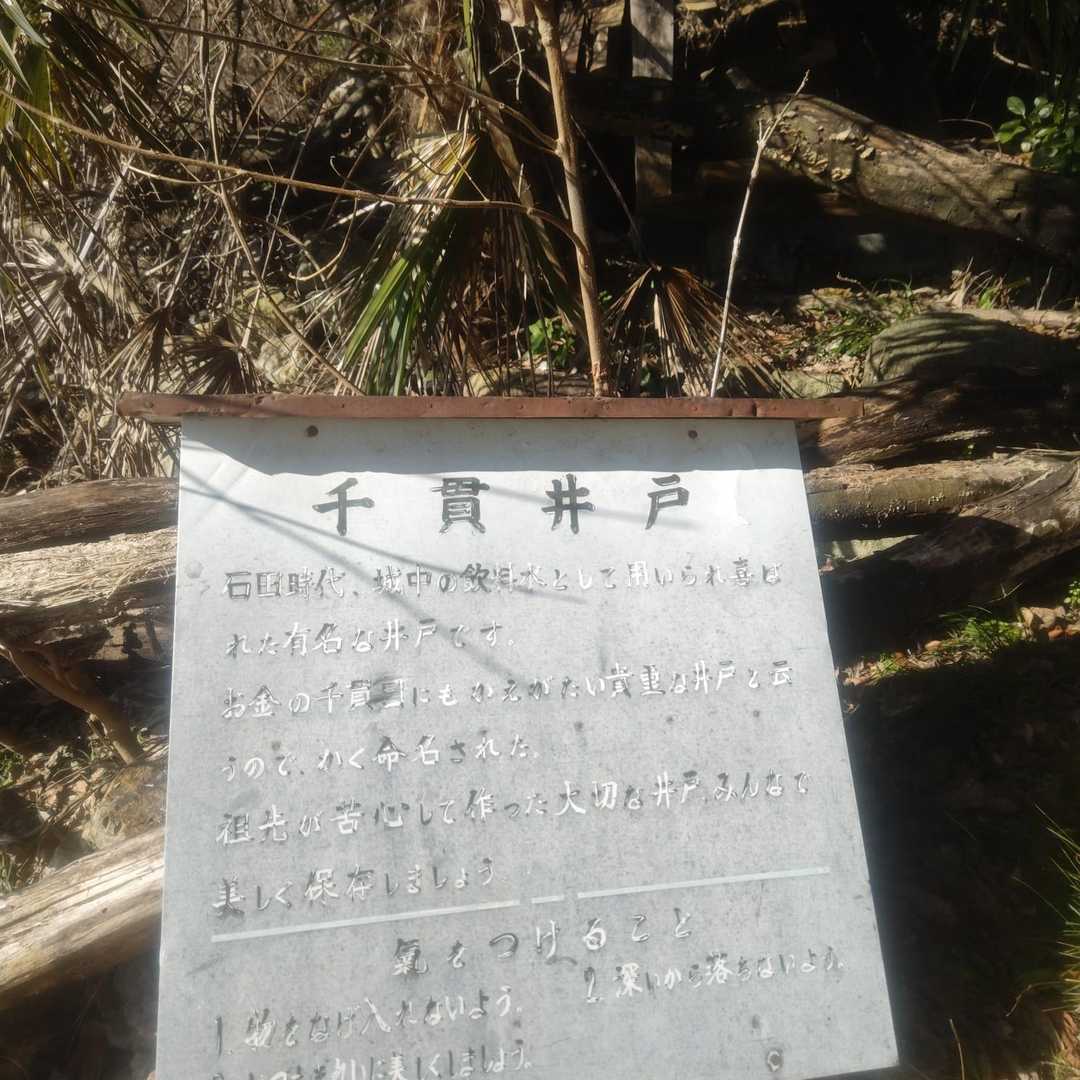 千貫井戸
石田時代、城中の飲料水として用いられ喜ば
れた有名な井戸です。
お金の千貫目にもかえがたい貴重な井戸と云
うので、かく命名された。
祖先が苦心して作った大切な井戸、みんなで
美しく保存しましょう
氣をつけること
1. 物をなげ入れないよう。
2. 深いから落ちないよう。
美しくしましょう。